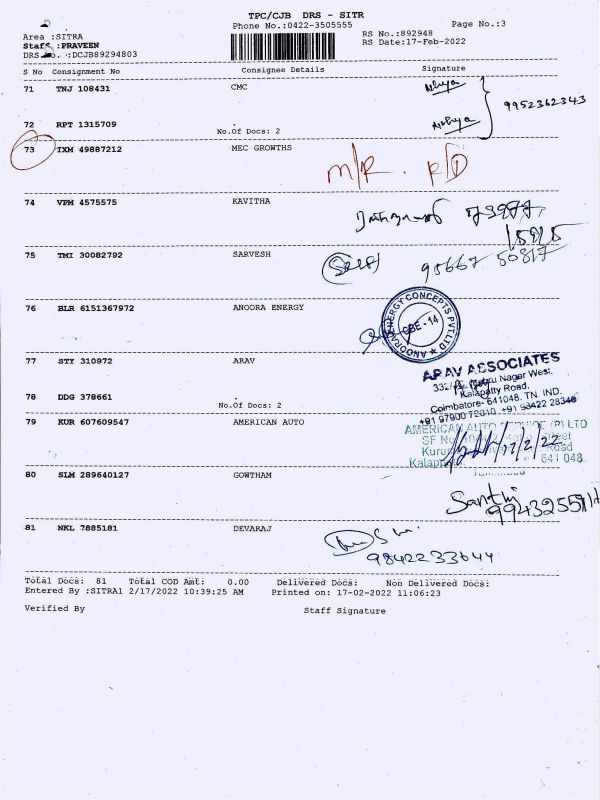 TPC/CJB DRS - SITR
Phone No.:0422-3505555
Page No.:3
Area :SITRA
RS No.:892948
Staff :PRAVEEN
RS Date:17-Feb-2022
DRS No. :DCJB89294803
S No Consignment No Consignee Details Signature
71 TNJ 108431 CMC
9952362343
72 RPT 1315709 .
No.Of Docs: 2
73 IXM 49887212 MEC GROWTHS
M/R. R/D
74 VPM 4575575 KAVITHA
75 TMI 30082792 SARVESH
(Self) 90667 50817
76 BLR 6151367972 ANOORA ENERGY
ANOORA ENERGY CONCEPTS PVT LTD
CBE-14
77 STY 310972 ARAV
ARAV ASSOCIATES
Nehru Nagar West,
Kalapatty Road,
78 DDG 378661 .
Coimbatore- 641048. TN IND.
No.Of Docs: 2
+91 97900 72010 +91 98422 28348
79 KUR 607609547 AMERICAN AUTO
AMERICAN AUTO SERVICE (P) LTD
SF No
17/2/22
Road
641 048
80 SLM 289640127 GOWTHAM
Santhi
81 NKL 7885181 DEVARAJ
9842233644
Total Docs: 81 Total COD Amt: 0.00 Delivered Docs: Non Delivered Docs:
Entered By :SITRA1 2/17/2022 10:39:25 AM Printed on: 17-02-2022 11:06:23
Verified By Staff Signature